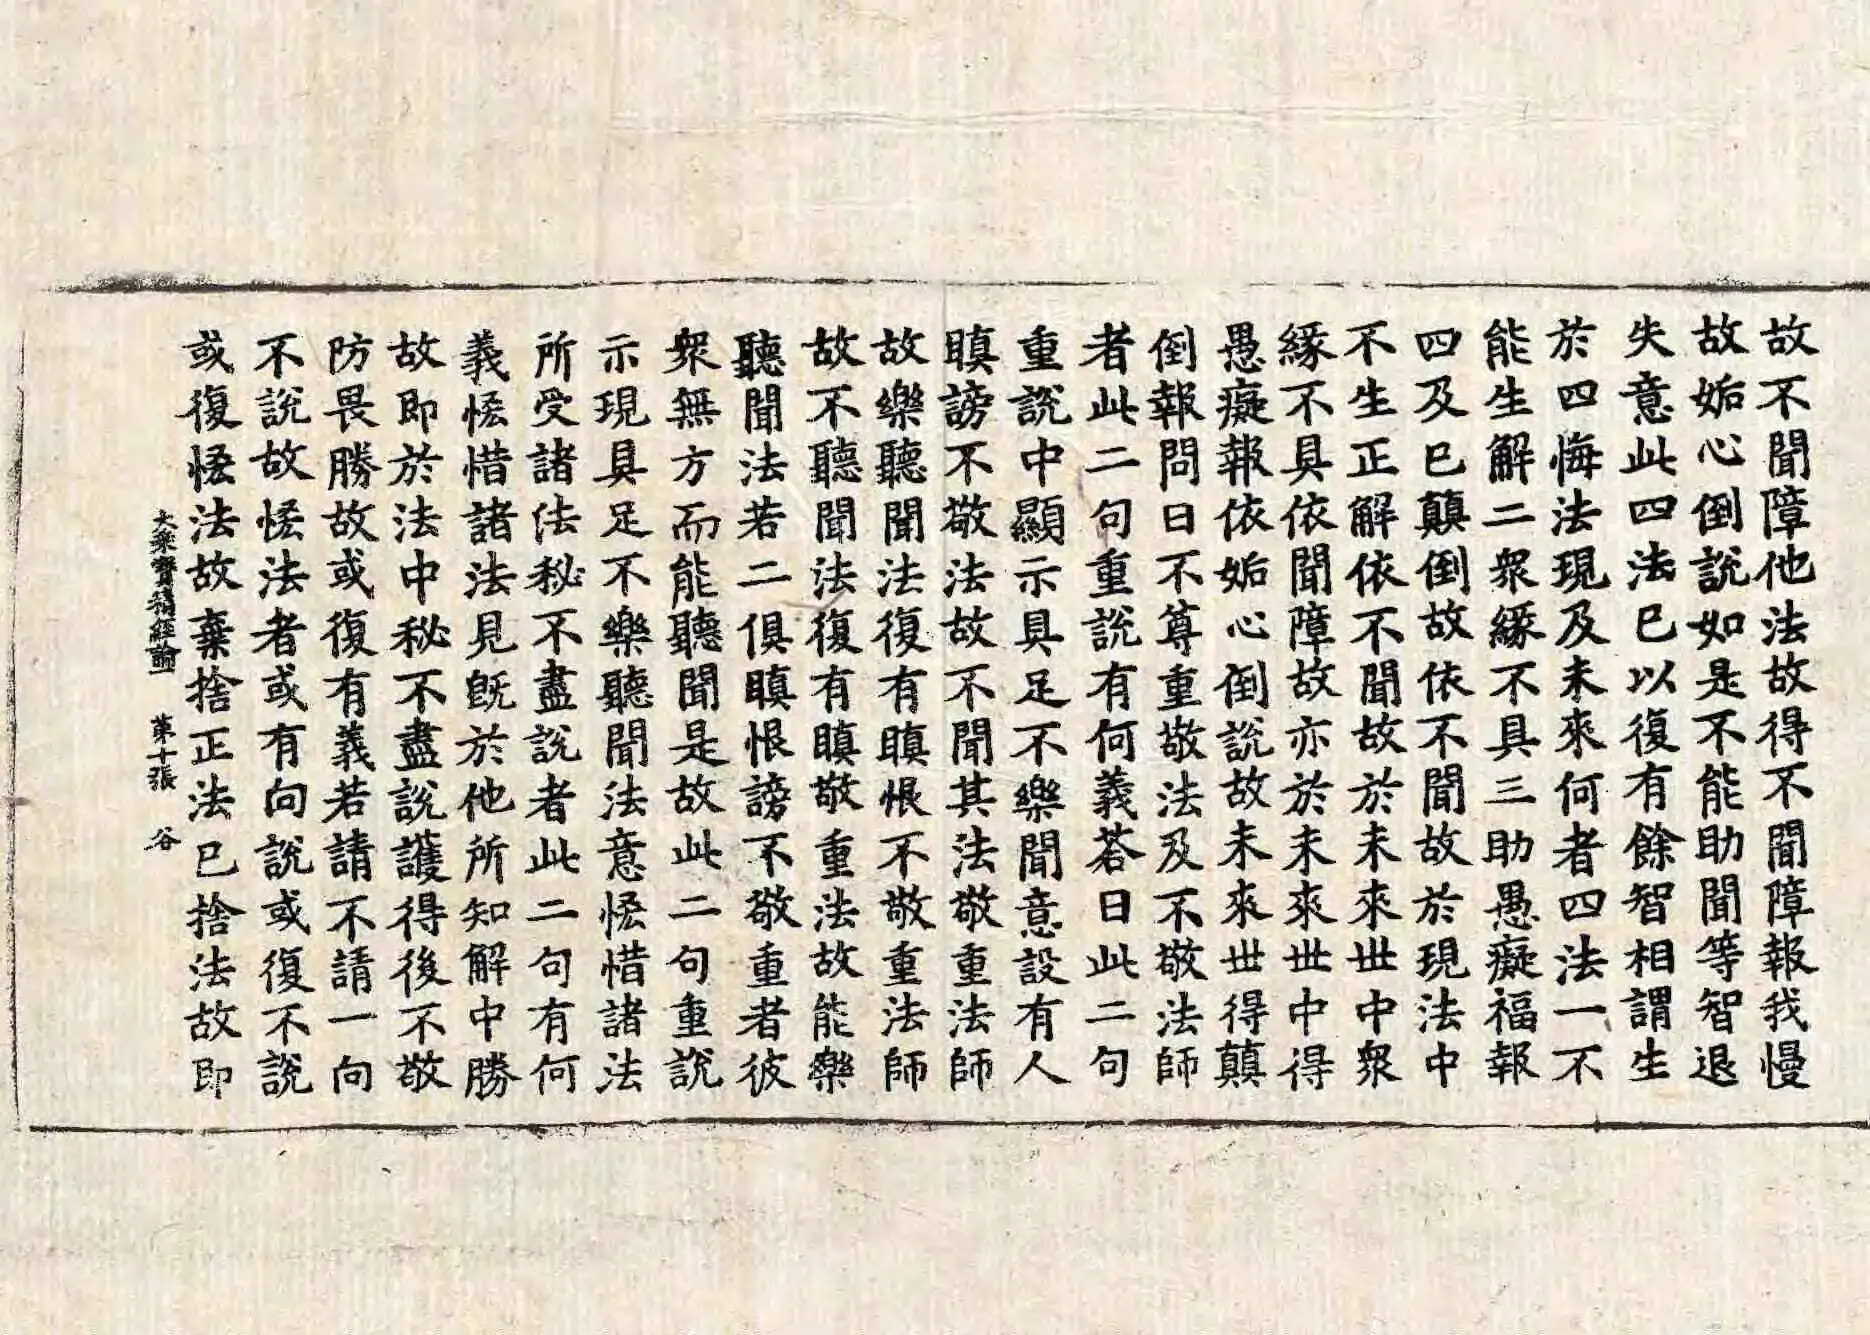 故不聞障他法故得不聞障報我慢
故妬心倒說如是不能助聞等智退
失意此四法已以復有餘智相謂生
於四悔法現及未來何者四法一不
能生解二衆緣不具三助愚癡福報
四及已顛倒故依不聞故於現法中
不生正解依不聞故於未來世中衆
緣不具依聞障故亦於未來世中得
愚癡報依妬心倒說故未來世得顛
倒報問曰不尊重敬法及不敬法師
者此二句重說有何義荅曰此二句
重說中顯示具足不樂聞意設有人
瞋謗不敬法故不聞其法敬重法師
故樂聽聞法復有瞋恨不敬重法師
故不聽聞法復有瞋敬重法故能樂
聽聞法若二俱瞋恨謗不敬重者彼
衆無方而能聽聞是故此二句重說
示現具足不樂聽聞法意悋惜諸法
所受諸法秘不盡說者此二句有何
義悋惜諸法見旣於他所知解中勝
故即於法中秘不盡說護得後不敬
防畏勝故或復有義若請不請一向
不說故悋法者或有向說或復不說
或復悋法故棄捨正法已捨法故即
大乘寶積經論一 第十張 谷